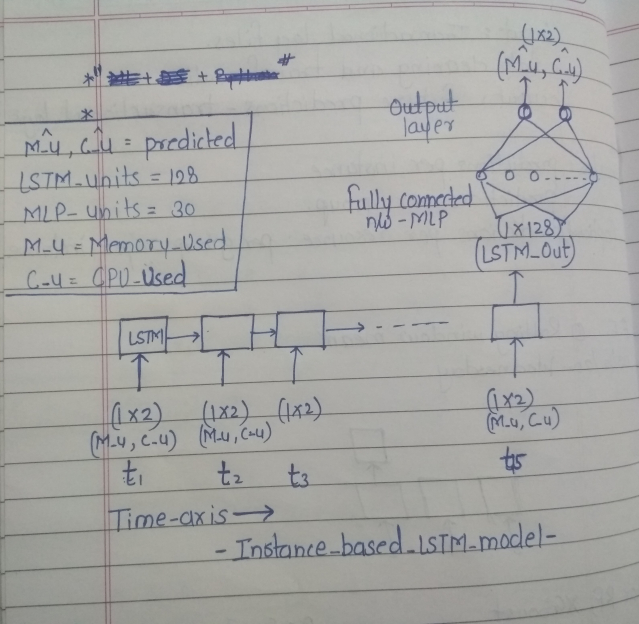 *" + + "
*
M̂_u, Ĉ_u = predicted
LSTM-units = 128
MLP-units = 30
M_u = Memory_Used
C_u = CPU_Used
(1×2)
(M̂_u, Ĉ_u)
Output
layer
Fully connected
n/w - MLP
(1×128)
(LSTM_Out)
LSTM
(1×2) (1×2) (1×2) (1×2)
(M_u, C_u) (M_u, C_u) (M_u, C_u)
t1 t2 t3
Time-axis →
- Instance_based_LSTM_model -